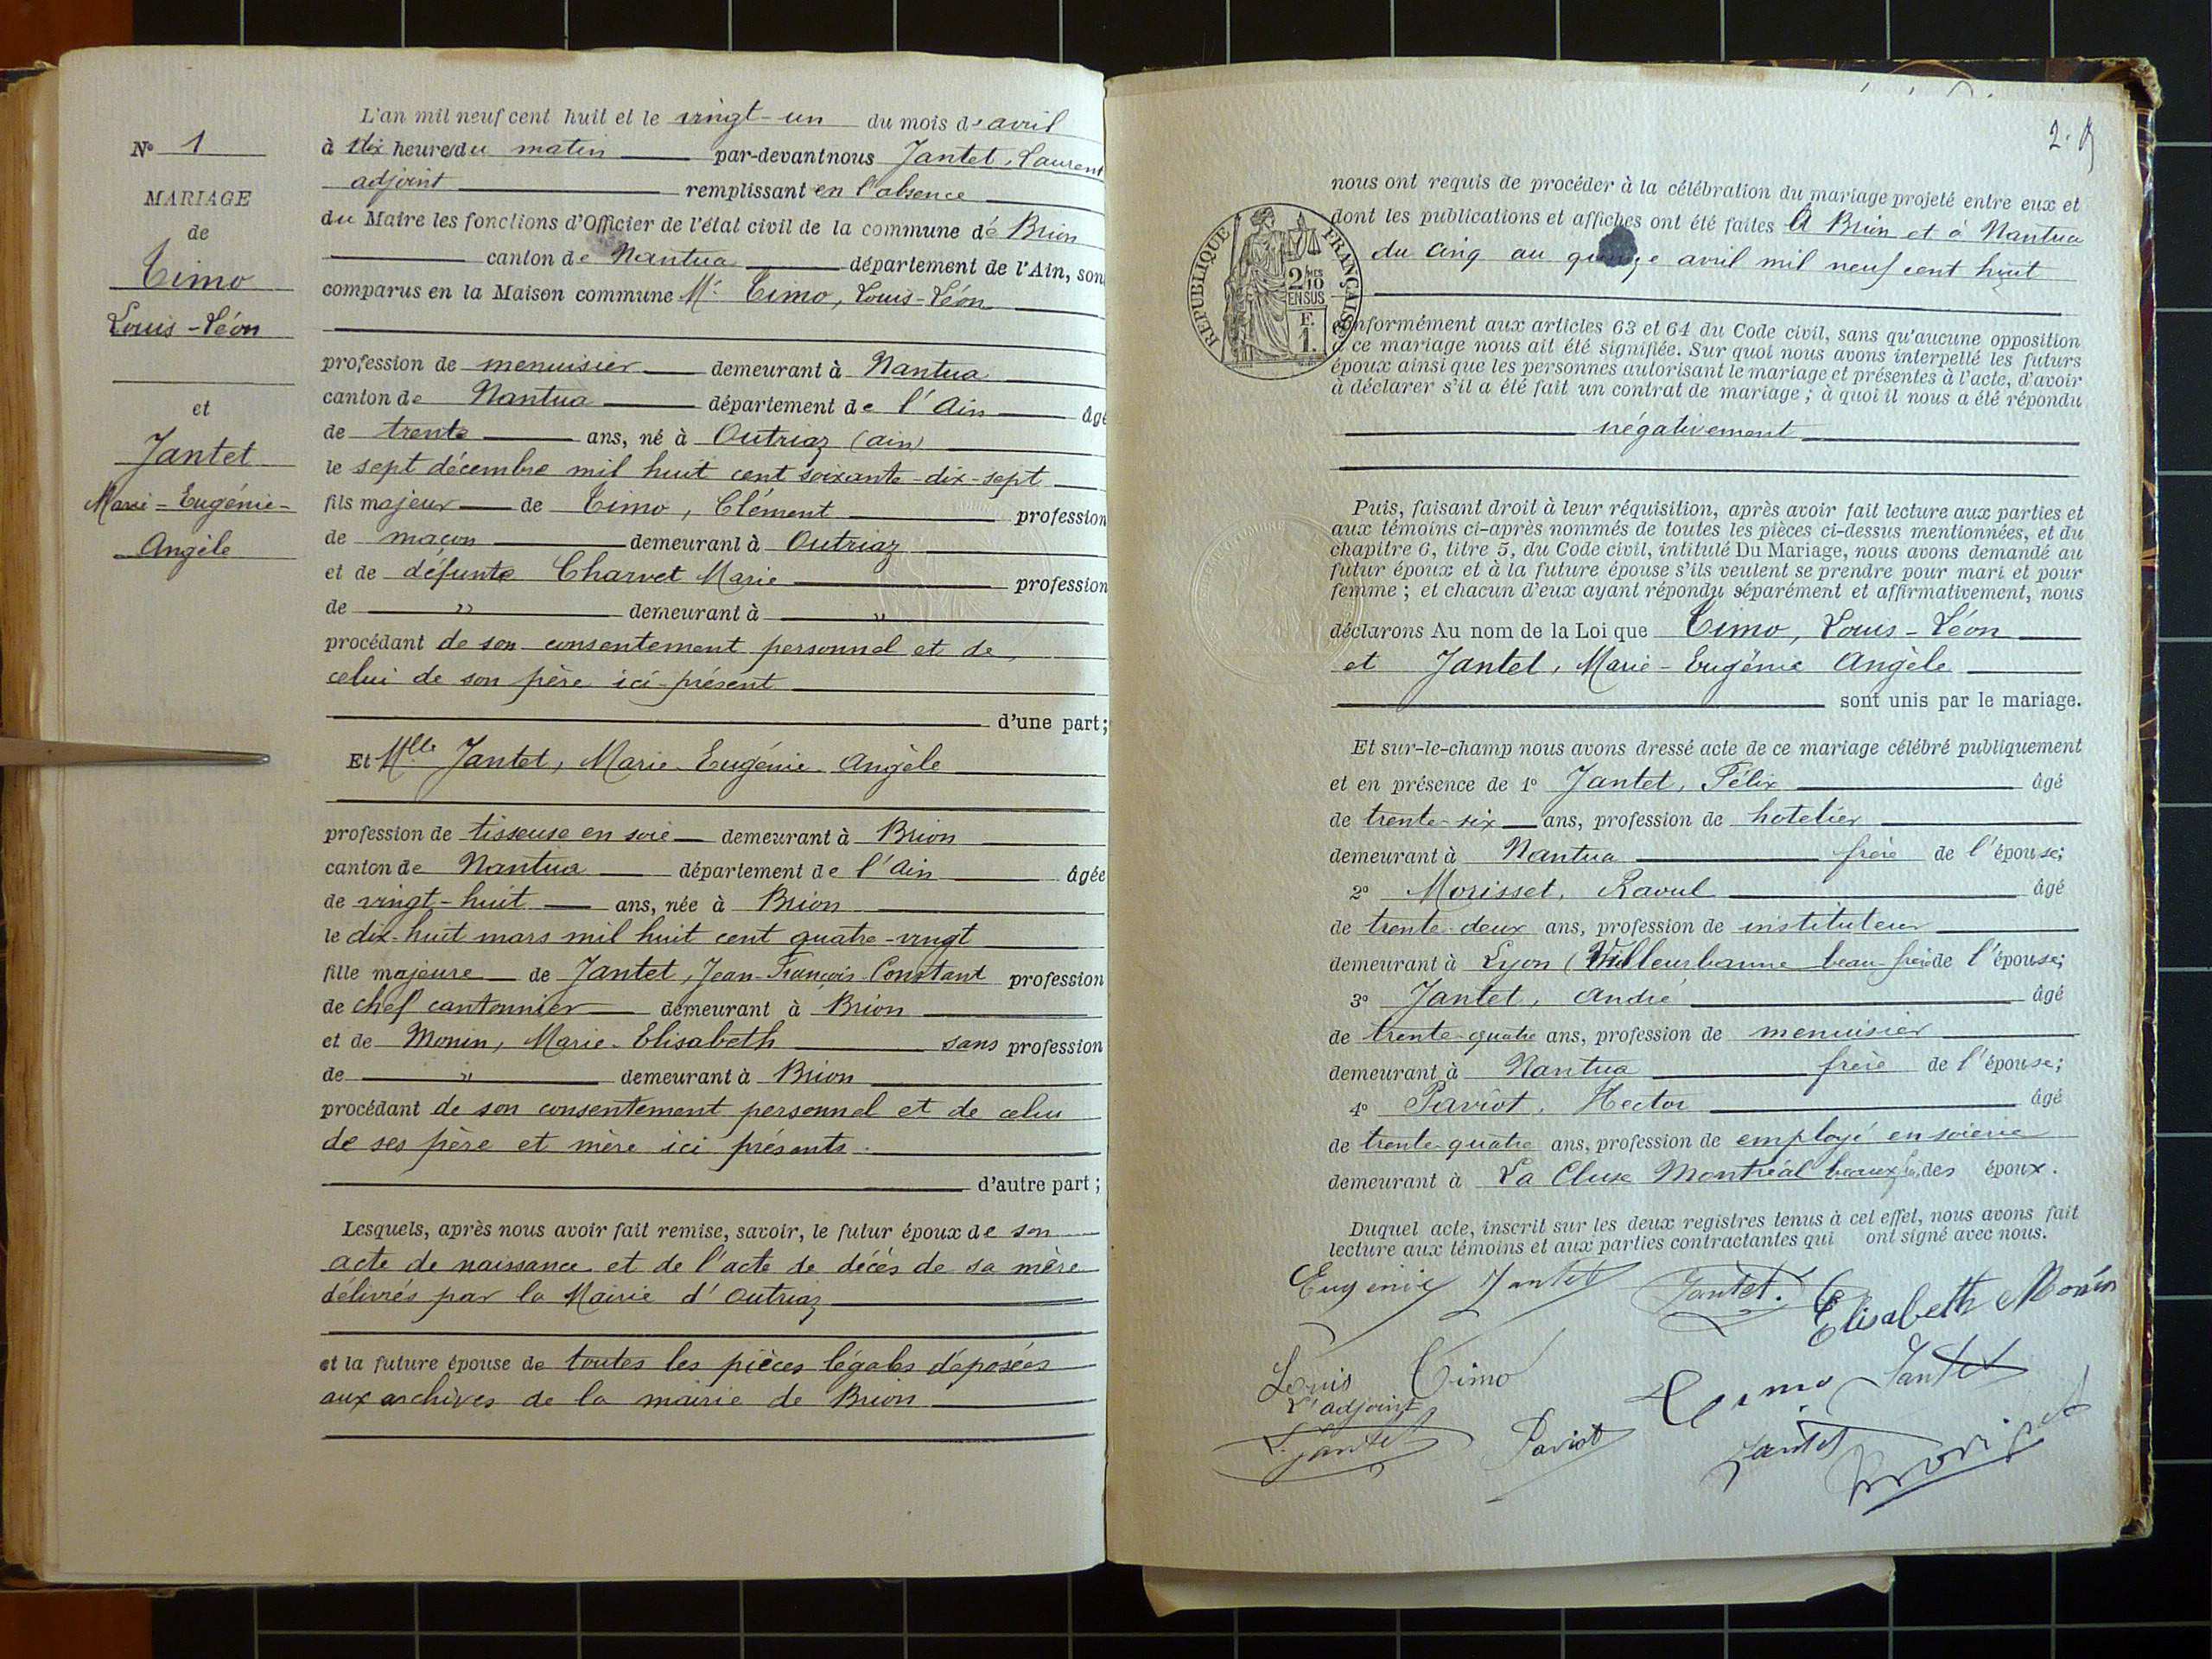 N° 1
MARIAGE
de
Timo
Louis-Léon
et
Jantet
Marie-Eugénie-
Angèle
L'an mil neuf cent huit et le vingt-un du mois de avril
à dix heures du matin par-devant nous Jantet, Laurent
adjoint remplissant en l'absence
du Maire les fonctions d'Officier de l'état civil de la commune de Brion
canton de Nantua département de l'Ain, sont
comparus en la Maison commune Mr Timo, Louis-Léon
profession de menuisier demeurant à Nantua
canton de Nantua département de l'Ain âgé
de trente ans, né à Outriaz (ain)
le sept décembre mil huit cent soixante-dix-sept
fils majeur de Timo, Clément profession
de maçon demeurant à Outriaz
et de défunte Charvet Marie profession
de " demeurant à "
procédant de son consentement personnel et de
celui de son père ici-présent
d'une part;
Et Mlle Jantet, Marie-Eugénie Angèle
profession de tisseuse en soie demeurant à Brion
canton de Nantua département de l'Ain âgée
de vingt-huit ans, née à Brion
le dix-huit mars mil huit cent quatre-vingt
fille majeure de Jantet, Jean-François-Constant profession
de chef cantonnier demeurant à Brion
et de Monin, Marie-Elisabeth sans profession
de " demeurant à Brion
procédant de son consentement personnel et de celui
de ses père et mère ici présents.
d'autre part;
Lesquels, après nous avoir fait remise, savoir, le futur époux de son
acte de naissance et de l'acte de décès de sa mère
délivrés par la Mairie d'Outriaz
et la future épouse de toutes les pièces légales déposées
aux archives de la mairie de Brion
nous ont requis de procéder à la célébration du mariage projeté entre eux et
dont les publications et affiches ont été faites A Brion et à Nantua
du cinq au quinze avril mil neuf cent huit
REPUBLIQUE FRANÇAISE
2/10
EN SUS
F.
1.
Conformément aux articles 63 et 64 du Code civil, sans qu'aucune opposition
à ce mariage nous ait été signifiée. Sur quoi nous avons interpellé les futurs
époux ainsi que les personnes autorisant le mariage et présentes à l'acte, d'avoir
à déclarer s'il a été fait un contrat de mariage; à quoi il nous a été répondu
négativement
Puis, faisant droit à leur réquisition, après avoir fait lecture aux parties et
aux témoins ci-après nommés de toutes les pièces ci-dessus mentionnées, et du
chapitre 6, titre 5, du Code civil, intitulé Du Mariage, nous avons demandé au
futur époux et à la future épouse s'ils veulent se prendre pour mari et pour
femme; et chacun d'eux ayant répondu séparément et affirmativement, nous
déclarons Au nom de la Loi que Timo, Louis-Léon
et Jantet, Marie-Eugénie Angèle
sont unis par le mariage.
Et sur-le-champ nous avons dressé acte de ce mariage célébré publiquement
et en présence de 1° Jantet, Félix âgé
de trente-six ans, profession de hotelier
demeurant à Nantua frère de l'épouse;
2° Morisset, Raoul âgé
de trente-deux ans, profession de instituteur
demeurant à Lyon (Villeurbanne beau-frère de l'épouse;
3° Jantet, André âgé
de trente-quatre ans, profession de menuisier
demeurant à Nantua frère de l'épouse;
4° Paviot, Hector âgé
de trente-quatre ans, profession de employé en soierie
demeurant à La Cluse Montréal des époux.
Duquel acte, inscrit sur les deux registres tenus à cet effet, nous avons fait
lecture aux témoins et aux parties contractantes qui ont signé avec nous.
Eugénie Jantet Jantet. Elisabeth Monin
Louis Timo Timo Jantet
L'adjoint
L. Jantet Paviot Jantet Morisset